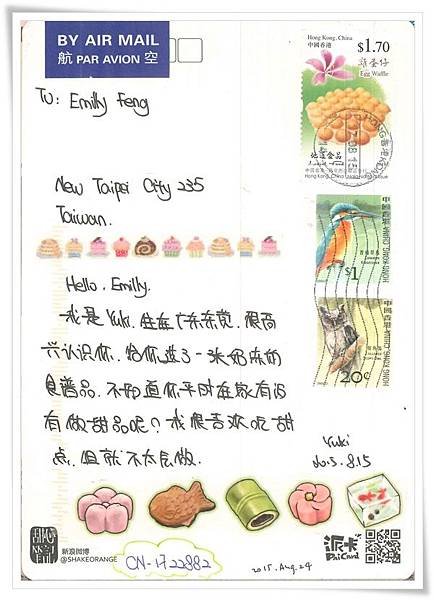 BY AIR MAIL
航 PAR AVION 空
Hong Kong, China
中國香港
$1.70
雞蛋仔
Egg Waffle
地道食品
To: Emilly Feng
New Taipei City 235
Taiwan.
中國香港 HONG KONG, CHINA
$1
中國香港 HONG KONG, CHINA
20¢
Hello, Emilly.
我是Yuki. 住在广东东莞. 很高
兴认识你. 给你选了一张奶冻的
食谱片. 不知道你平时在家有没
有做甜品呢? 我很喜欢吃甜
点. 但就不太会做.
Yuki
2015.8.15
新浪微博
@SHAKEORANGE
CN-1722882
2015.Aug.24
派卡
PaiCard